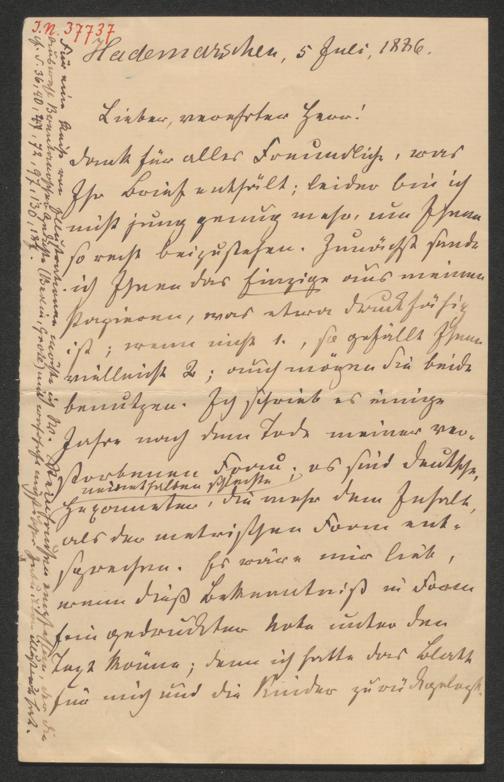 I.N. 37737
Hademarschen, 5 Juli, 1886.
Lieber, verehrter Herr!
Dank für alles Freundliche, was
Ihr Brief enthält; leider bin ich
nicht jung genug mehr, um Ihnen
so recht beizustehen. Zunächst sende
ich Ihnen das Einzige aus meinen
Papieren, was etwa druckfähig
ist; wenn nicht 1., so gefällt Ihnen
vielleicht 2; auch mögen Sie beide
benutzen. Ich schrieb es einige
Jahre nach dem Tode meiner ver-
storbenen Frau; es sind deutsche,
meinethalben schlechte
Hexameter, die mehr dem Inhalt,
als der metrischen Form ent-
sprechen. Es wäre mir lieb,
wenn dieß Bekenntniß in Form
ein gedruckter Note unter den
Text käme; denn ich hatte das Blatt
für mich und die Kinder zurückgelegt.
Für eine Reihe von Illustrationen möchte ich